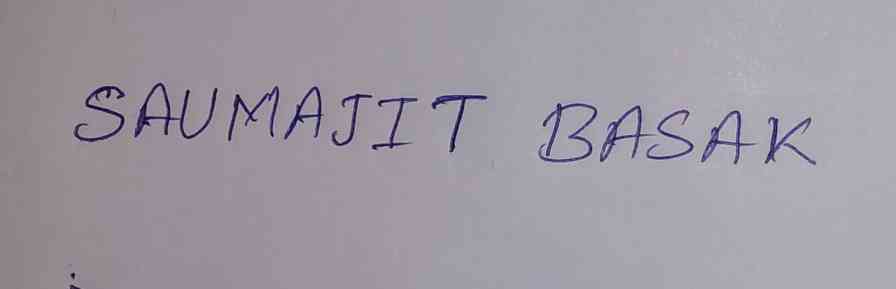 SAUMAJIT BASAK